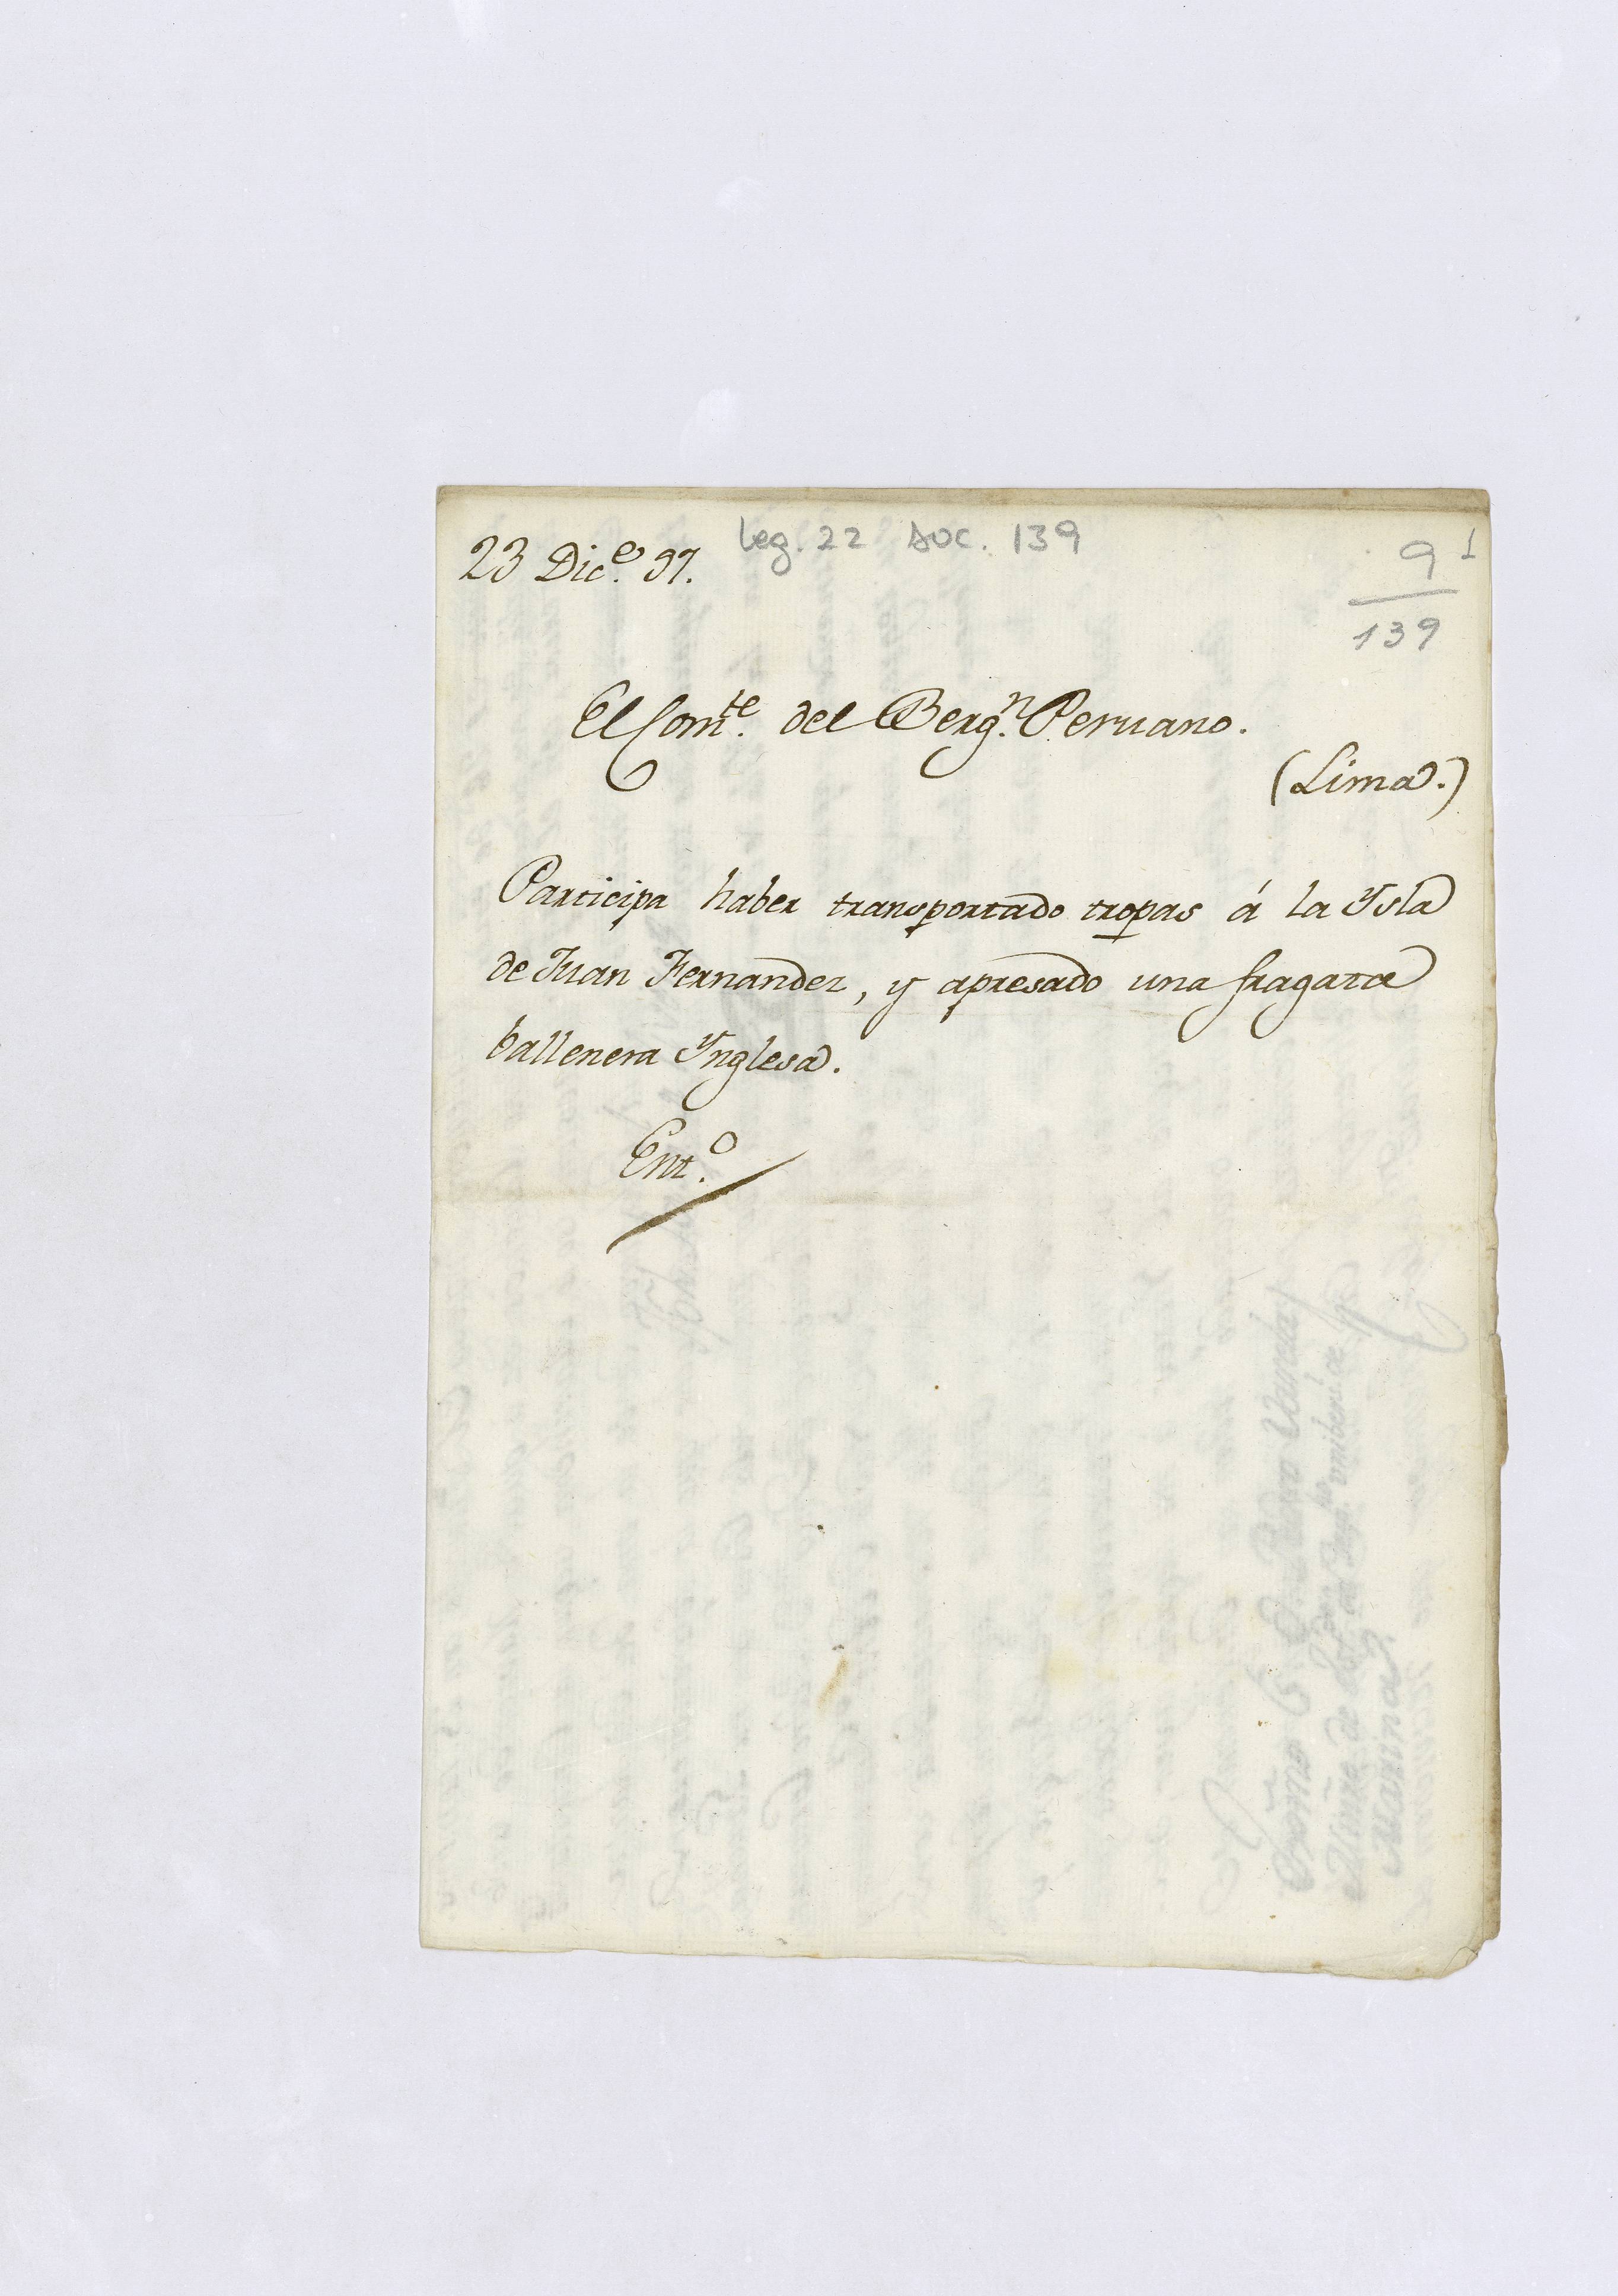 23 Dic.e 97.
Leg. 22 Doc. 139
9 1
139
El Com.te del Berg.n Peruano.
(Lima.)
Participa haber transportado tropas á la Ysla
de Juan Fernandez, y apresado una fragata
ballenera Ynglesa.
Ent.o